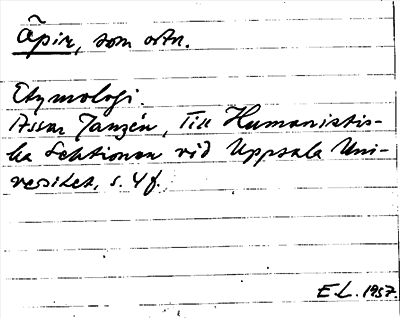 Äpir, som ortn.
Etymologi.
Assar Janzén, Till Humanistis-
ka Sektionen vid Uppsala Uni-
versitet, s. 4 f.
E.L. 1957.